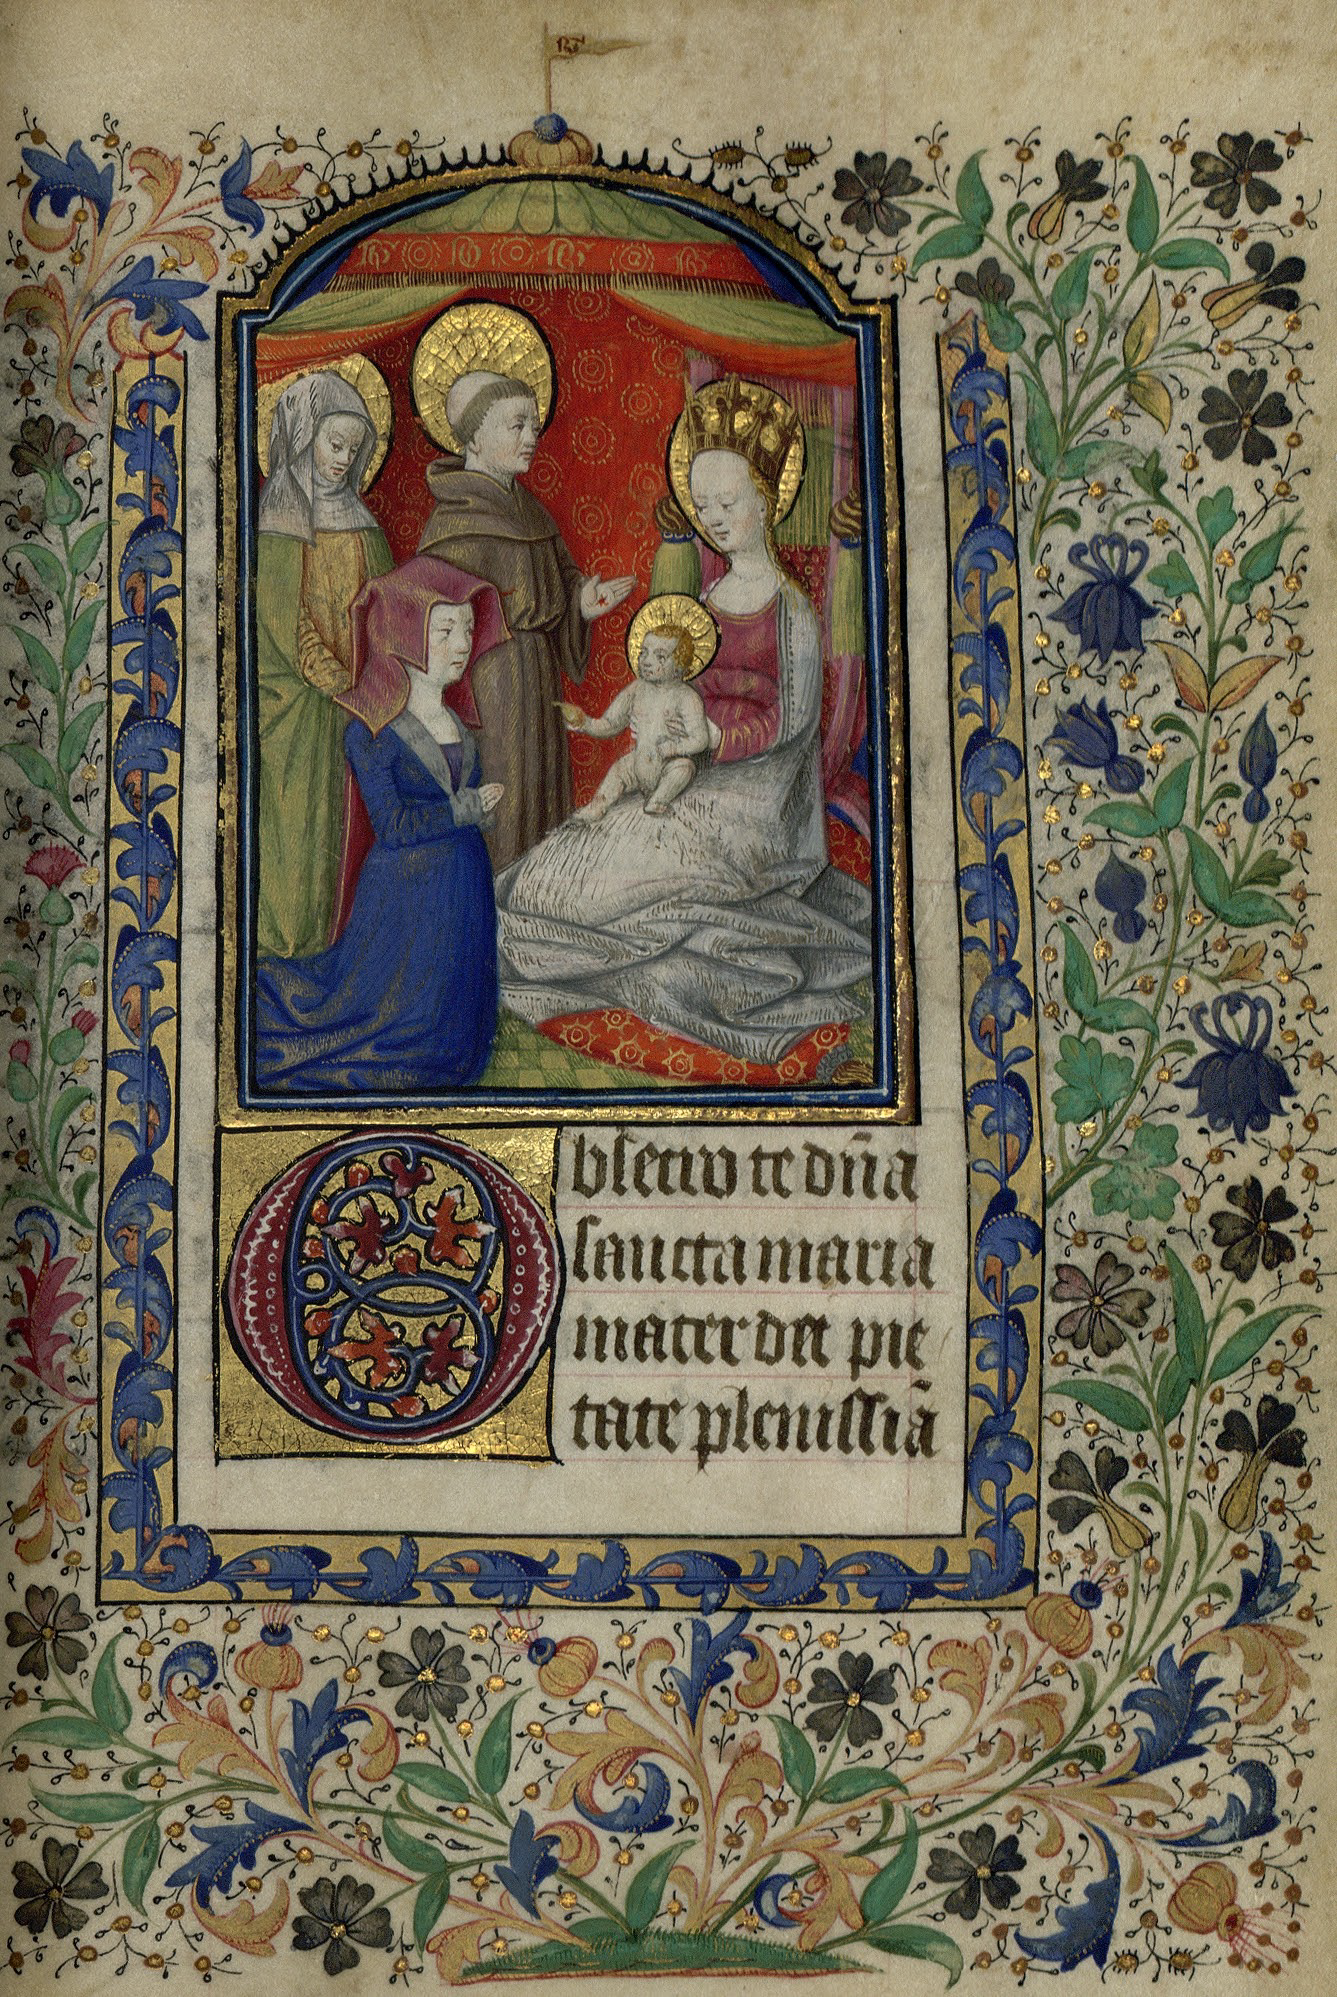 Obsecro te dn̄a
sancta maria
mater dei pie
tate plenissiā